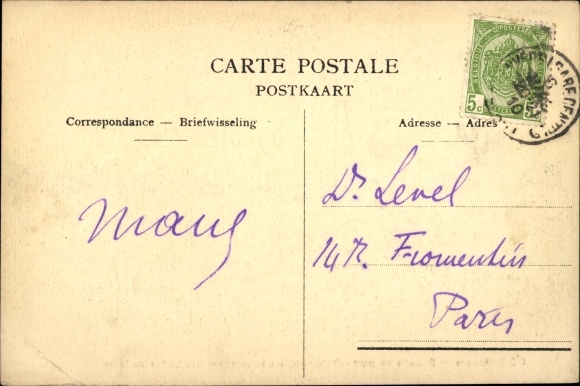 CARTE POSTALE
POSTKAART
Correspondance — Briefwisseling
Adresse — Adres
5c
Dr. Level
14 R. Fromentin
Paris